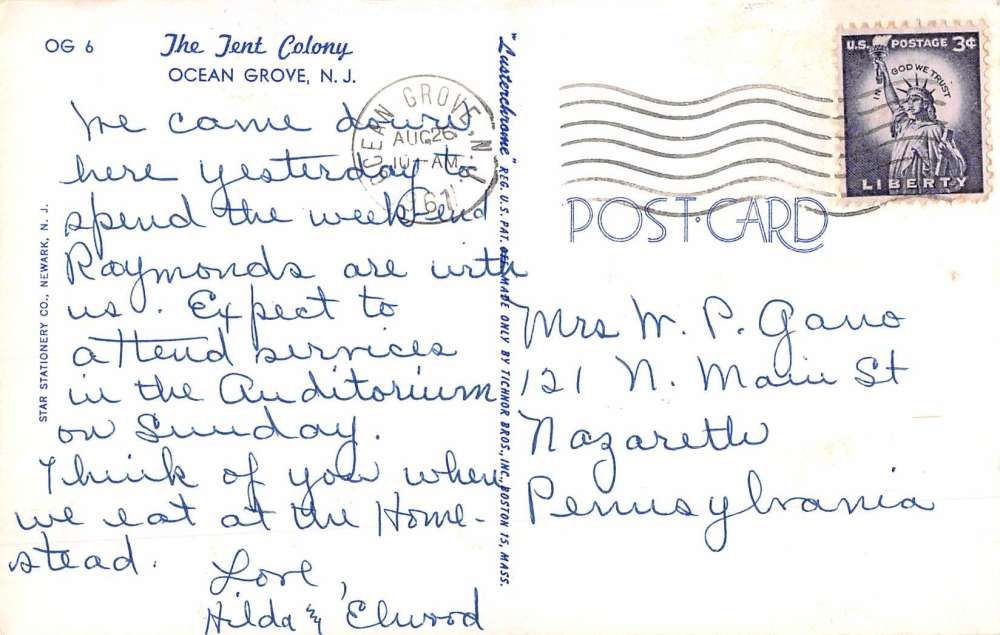 OG 6
The Tent Colony
OCEAN GROVE, N. J.
We came down
here yesterday to
spend the week-end
Raymonds are with
us. Expect to
attend services
in the Auditorium
on Sunday.
Think of you when
we eat at the Home-
stead.
Love,
Hilda & Elwood
STAR STATIONERY CO., NEWARK, N. J.
"Lusterchrome" REG. U.S. PAT. OFF. MADE ONLY BY TICHNOR BROS., INC., BOSTON 15, MASS.
OCEAN GROVE, N.J.
AUG 26
10 - AM
U.S. POSTAGE 3¢
IN GOD WE TRUST
LIBERTY
POST CARD
Mrs W. P. Gano
121 N. Main St
Nazareth
Pennsylvania